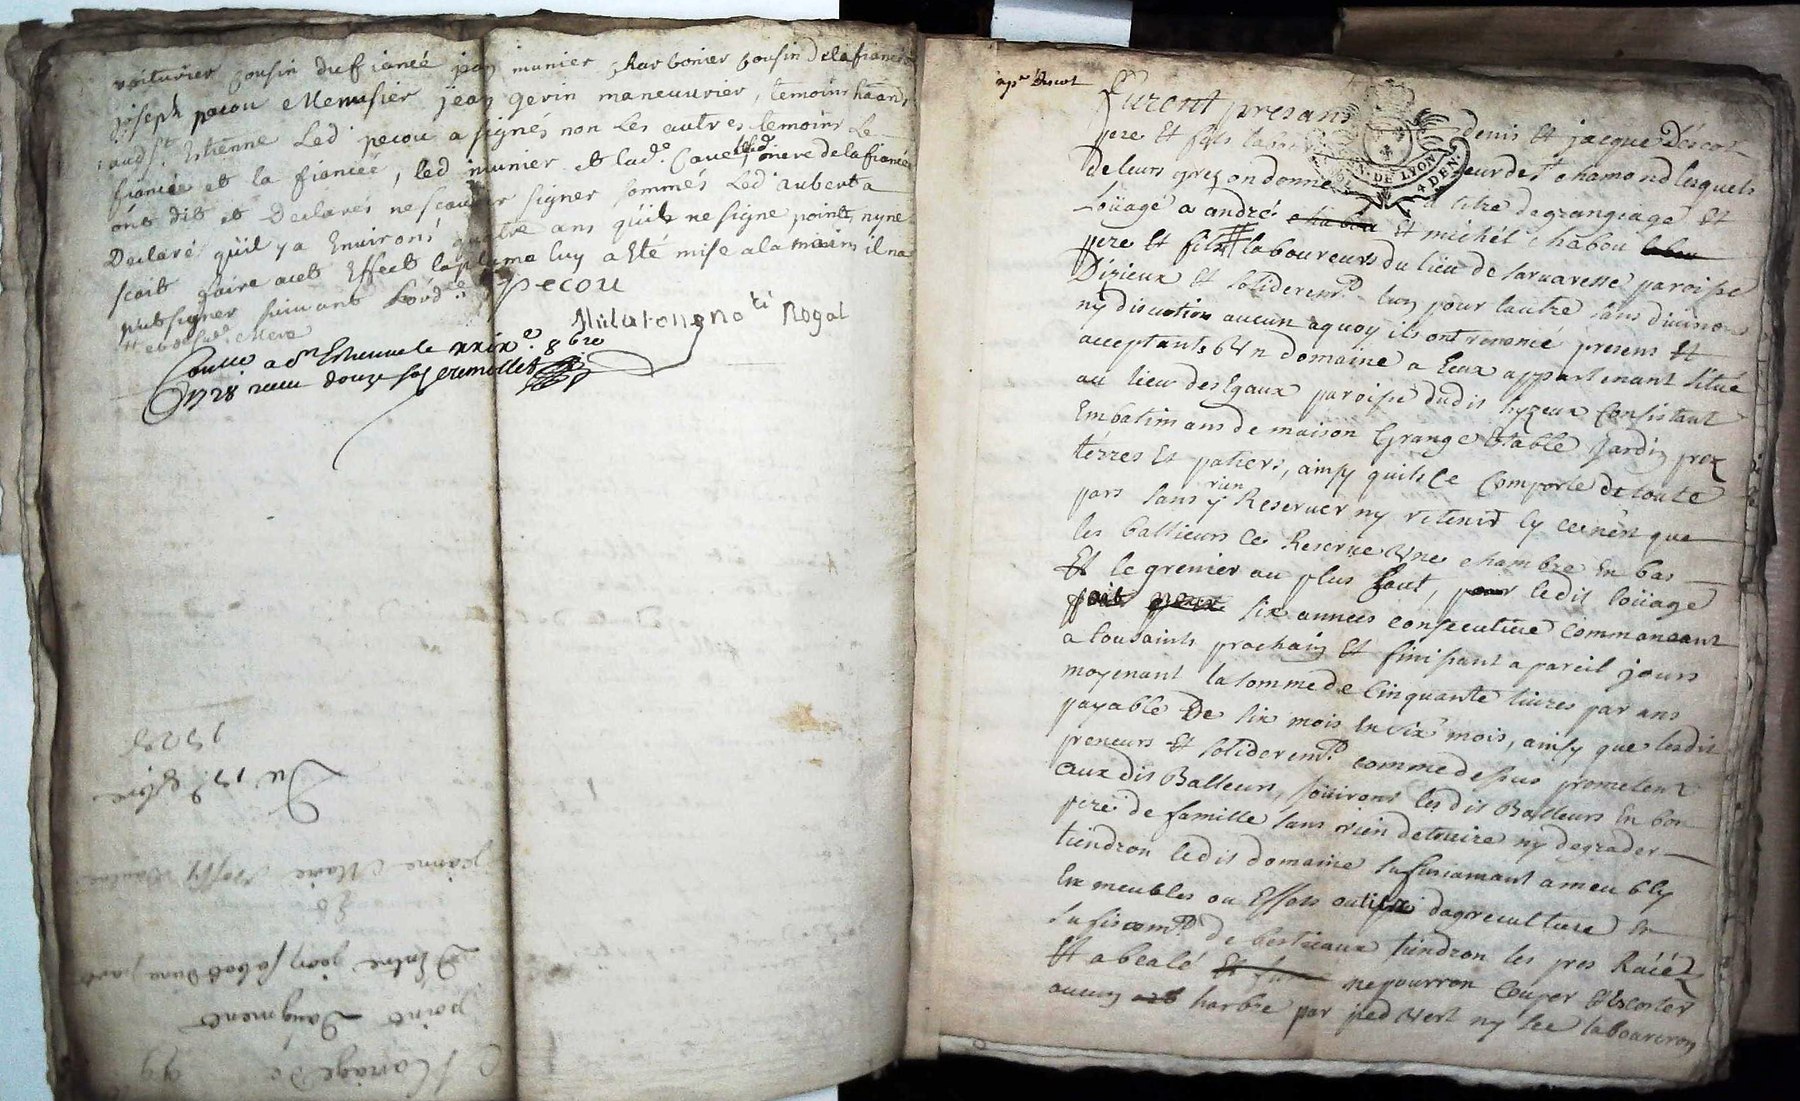 voiturier cousin du fiancé jean munier charbonier cousin de la fiancée
joseph pacou Menusier jean gerin maneuvrier, temoins habit
audt. Estienne Led. pecou a signés non Les autres temoins Le
fiancée et la fiancée, led munier et lad. mere de la fiancée
ont dit et Declarés ne scavoir signer sommés Led. auberta
Declaré quil y a Environs quatre ans quils ne signe point, ny ne
scait faire acet Effect la plume luy a Eté mise a la mains il na
put signer suivant Lord.ce pecou
Mulatongno.re Rogal
a St Estienne le xxix.e 8bre
1728 receu douze sols
Furent presans denis et jacque Descos
pere Et fils
de leurs gres on donne St chamond lesquels
a titre de grangeage Et
Loüage a andré chabou Et michel chabou
pere Et fils laboureurs du lieu de larvaresse paroisse
Dizieux Et soliderem.t lun pour lautre sans division
ny discution aucun a quoy ils ont renoncé presens Et
acceptants Un domaine a Eux appartenant situé
au lieu des Egaux paroisse dudis Consistant
En batimans de maison Grange Etable Jardin prez
térres Et patiers, ainsy quils Ce Comporte de toute
pars sans y rien Reserver ny retenir sy ce nest que
les ballieurs Ce Reserve Une chambre En bas
Et le grenier au plus haut, ledis loüage
six années consecutive commancant
a tousaints prochain Et finissant a pareil jours
moyenant la somme de Cinquante livres par ans
payable De six mois En six mois, ainsy que lesdis
preneurs Et soliderem.t comme dessus prometent
aux dis Balleurs, joüirons lesdis Balleurs En bon
pere de famille sans rien detruire ny degrader
tiendron ledis domaine sufisiamant ameubly
En meubles ou Effets outils dagreculture En
sufiscem.t de bestieaux tiendron les pres
Et abealé ne pourron couper
aucun harbre par pied vert ny sec laboureron
1728
Du 17.e 8bre
Jeanne Marie
D'Entre
point Daugment
Mariage De 99